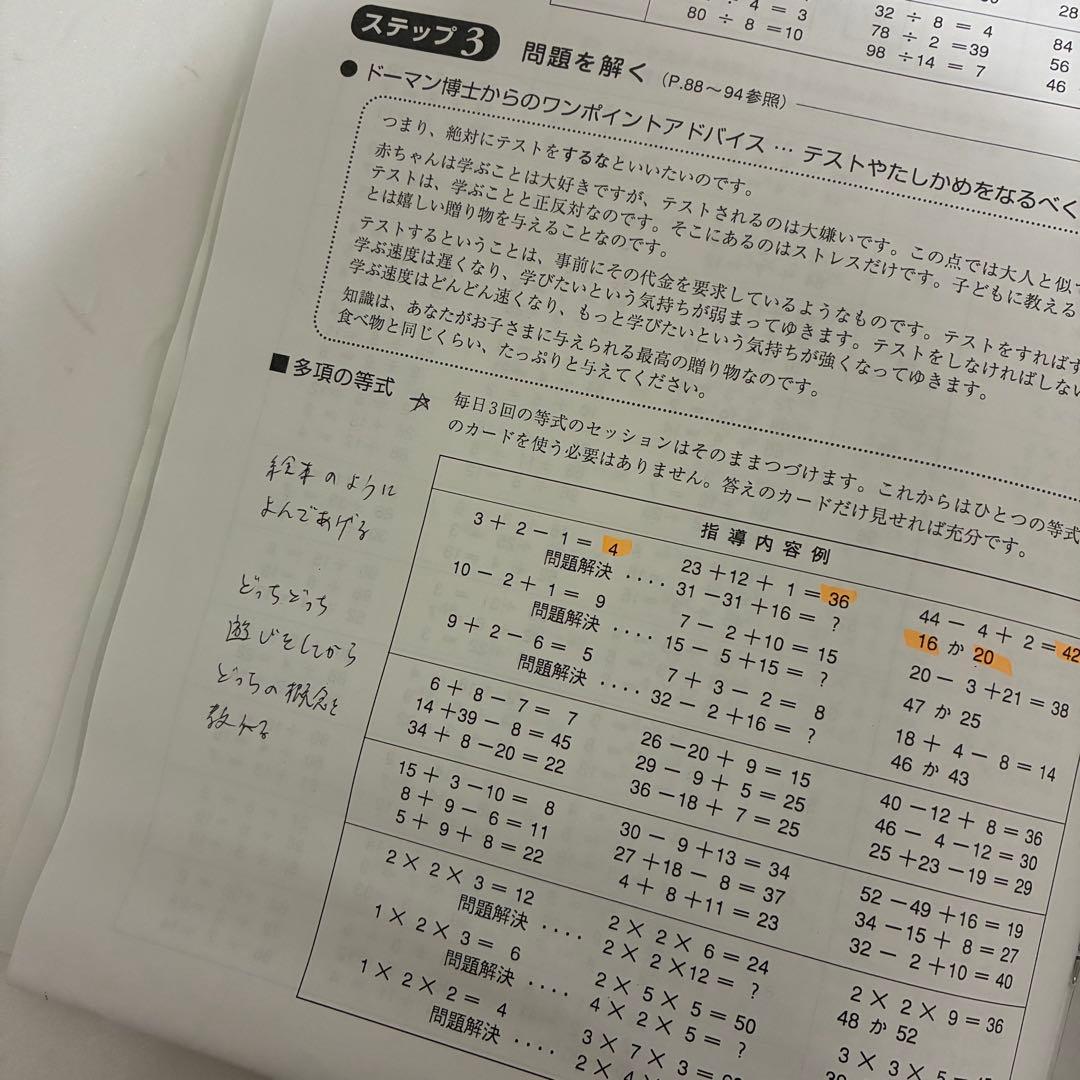 ÷ 4 = 3
80 ÷ 8 =10
32 ÷ 8 = 4
78 ÷ 2 =39
98 ÷14 = 7
28
84
56
46
ステップ3 問題を解く (P.88〜94参照)
● ドーマン博士からのワンポイントアドバイス … テストやたしかめをなるべく
つまり、絶対にテストをするなといいたいのです。
赤ちゃんは学ぶことは大好きですが、テストされるのは大嫌いです。この点では大人と似て
テストは、学ぶことと正反対なのです。そこにあるのはストレスだけです。子どもに教える
とは嬉しい贈り物を与えることなのです。
テストするということは、事前にその代金を要求しているようなものです。テストをすればす
学ぶ速度は遅くなり、学びたいという気持ちが弱まってゆきます。テストをしなければしない
学ぶ速度はどんどん速くなり、もっと学びたいという気持ちが強くなってゆきます。
知識は、あなたがお子さまに与えられる最高の贈り物なのです。
食べ物と同じくらい、たっぷりと与えてください。
■ 多項の等式
☆ 毎日3回の等式のセッションはそのままつづけます。これからはひとつの等式
のカードを使う必要はありません。答えのカードだけ見せれば充分です。
絵本のように
よんであげる
どっちどっち
遊びをしてから
どっちの概念を
教える
指導内容例
3 + 2 − 1 = 4
問題解決 ‥‥
10 − 2 + 1 = 9
問題解決 ‥‥
9 + 2 − 6 = 5
問題解決 ‥‥
23 +12 + 1 = 36
31 −31 +16 = ?
7 − 2 +10 = 15
15 − 5 +15 = ?
7 + 3 − 2 = 8
32 − 2 +16 = ?
44 − 4 + 2 = 42
16 か 20
20 − 3 +21 = 38
47 か 25
18 + 4 − 8 = 14
46 か 43
6 + 8 − 7 = 7
14 +39 − 8 = 45
34 + 8 −20 = 22
26 −20 + 9 = 15
29 − 9 + 5 = 25
36 −18 + 7 = 25
40 −12 + 8 = 36
46 − 4 −12 = 30
25 +23 −19 = 29
15 + 3 −10 = 8
8 + 9 − 6 = 11
5 + 9 + 8 = 22
30 − 9 +13 = 34
27 +18 − 8 = 37
4 + 8 +11 = 23
52 −49 +16 = 19
34 −15 + 8 = 27
32 − 2 +10 = 40
2 × 2 × 3 = 12
問題解決 ‥‥
1 × 2 × 3 = 6
問題解決 ‥‥
1 × 2 × 2 = 4
問題解決 ‥‥
2 × 2 × 6 = 24
2 × 2 ×12 = ?
2 × 5 × 5 = 50
4 × 2 × 5 = ?
3 × 7 × 3 =
2 × 4
2 × 2 × 9 = 36
48 か 52
3 × 3 × 5